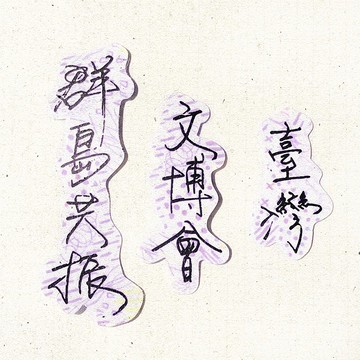 群島共振
文博會
臺灣